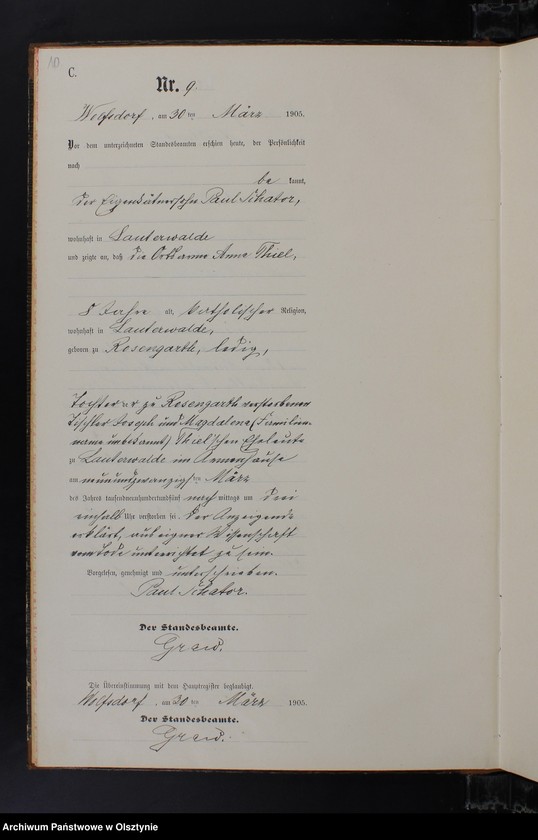 10
C.
Nr. 9.
Wolfsdorf, am 30 ten März 1905.
Vor dem unterzeichneten Standesbeamten erschien heute, der Persönlichkeit
nach
be kannt,
der Eigenkätnersohn Paul
wohnhaft in Lauterwalde
und zeigte an, daß die Ortsarme Anna Thiel,
Jahre alt, katholischer Religion,
wohnhaft in Lauterwalde,
geboren zu Rosengarth, ledig,
Tochter der zu Rosengarth verstorbenen
Tischler Joseph und Magdalena (Familien-
name unbekannt) Thiel'schen Eheleute
zu Lauterwalde im Armenhause
am neunundzwanzigsten März
des Jahres tausendneunhundertundfünf nachmittags um drei
einhalb Uhr verstorben sei. Der Anzeigende
erklärt, aus eigner Wissenschaft
vom Tode unterrichtet zu sein.
Vorgelesen, genehmigt und unterschrieben.
Paul
Der Standesbeamte.
Die Übereinstimmung mit dem Hauptregister beglaubigt.
Wolfsdorf, am 30 ten März 1905.
Der Standesbeamte.
Archiwum Państwowe w Olsztynie